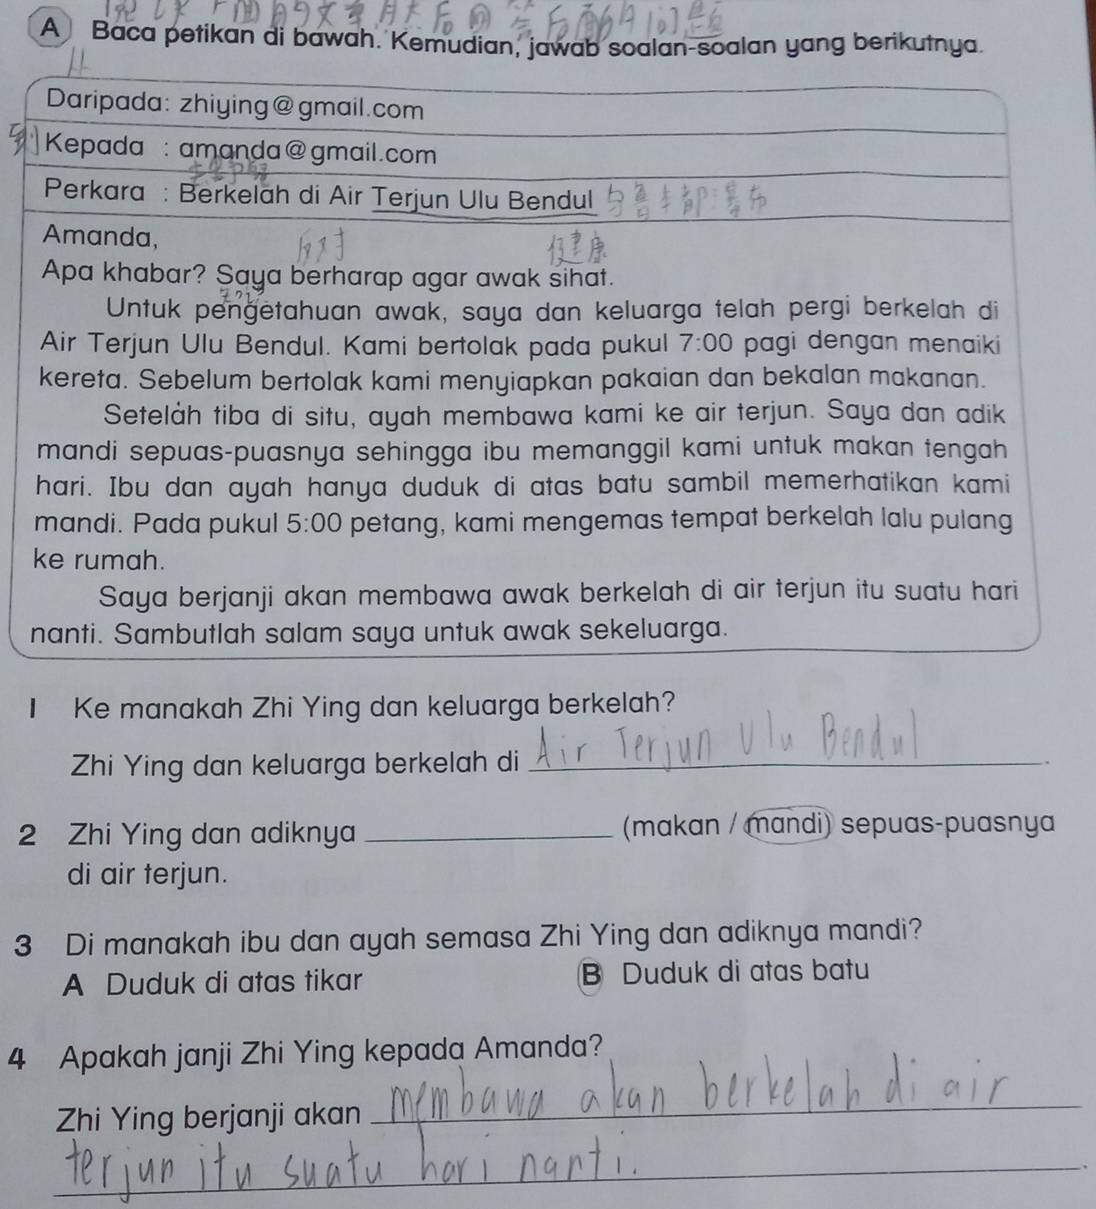 A Baca petikan di bawah. Kemudian, jawab soalan-soalan yang berikutnya.
Daripada: zhiying@gmail.com
Kepada : amanda@gmail.com
Perkara : Berkelah di Air Terjun Ulu Bendul
Amanda,
健康
Apa khabar? Saya berharap agar awak sihat.
Untuk pengetahuan awak, saya dan keluarga telah pergi berkelah di
Air Terjun Ulu Bendul. Kami bertolak pada pukul 7:00 pagi dengan menaiki
kereta. Sebelum bertolak kami menyiapkan pakaian dan bekalan makanan.
Setelah tiba di situ, ayah membawa kami ke air terjun. Saya dan adik
mandi sepuas-puasnya sehingga ibu memanggil kami untuk makan tengah
hari. Ibu dan ayah hanya duduk di atas batu sambil memerhatikan kami
mandi. Pada pukul 5:00 petang, kami mengemas tempat berkelah lalu pulang
ke rumah.
Saya berjanji akan membawa awak berkelah di air terjun itu suatu hari
nanti. Sambutlah salam saya untuk awak sekeluarga.
1 Ke manakah Zhi Ying dan keluarga berkelah?
Zhi Ying dan keluarga berkelah di Air Terjun Ulu Bendul.
2 Zhi Ying dan adiknya (makan / mandi) sepuas-puasnya
di air terjun.
3 Di manakah ibu dan ayah semasa Zhi Ying dan adiknya mandi?
A Duduk di atas tikar B Duduk di atas batu
4 Apakah janji Zhi Ying kepada Amanda?
Zhi Ying berjanji akan membawa akan berkelah di air
terjun itu suatu hari nanti.